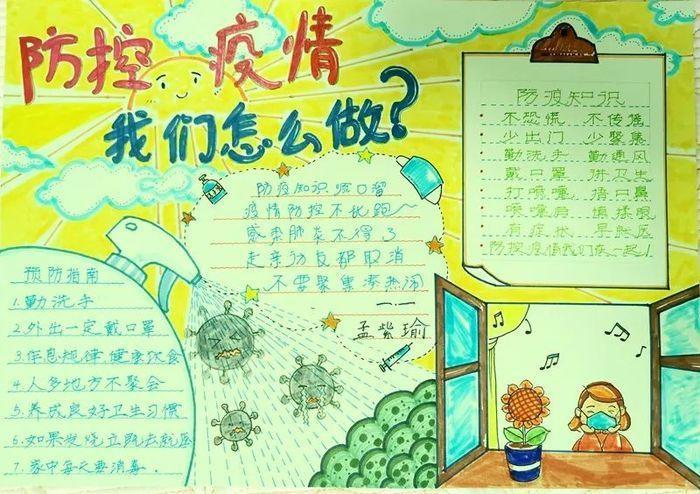 防控 疫情
我们怎么做?
防疫知识
不恐慌 不传谣
少出门 少聚集
勤洗手 勤通风
戴口罩 讲卫生
打喷嚏 捂口鼻
喷嚏后 慎揉眼
有症状 早就医
防控疫情我们在一起!
防疫知识顺口溜
疫情防控不扎跑
感染肺炎不得了
走亲访友都取消
不要聚集凑热闹
孟紫瑜
预防指南
1.勤洗手
2.外出一定戴口罩
3.作息规律健康饮食
4.人多地方不聚会
5.养成良好卫生习惯
6.如果发烧立既去就医
7.家中每天要消毒.